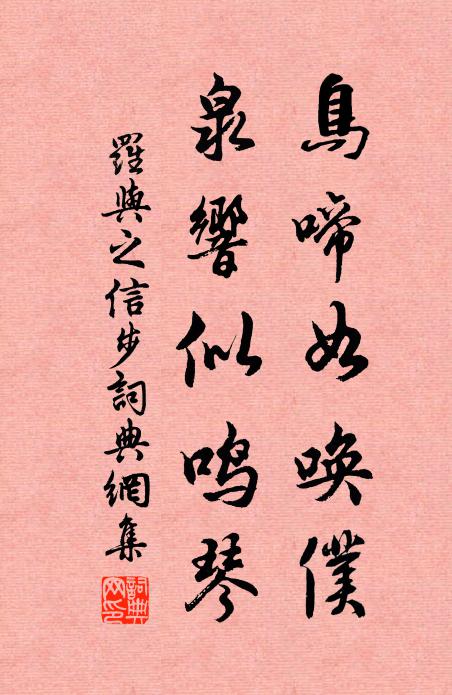 鳥啼如喚僕
泉響似鳴琴
羅與之信步詞典網集
詞典網印